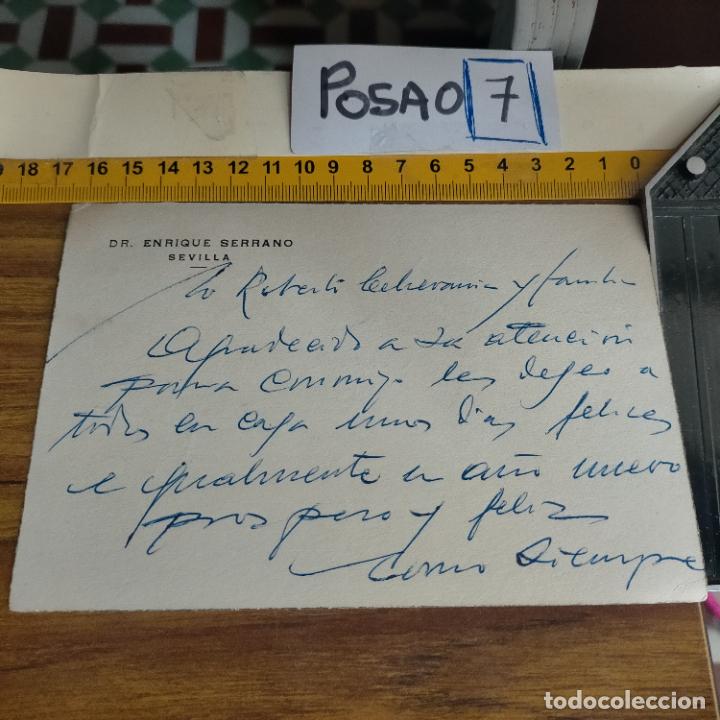 POSAO 7
18 17 16 15 14 13 12 11 10 9 8 7 6 5 4 3 2 1 0
DR. ENRIQUE SERRANO
SEVILLA
Roberto Echevarria y familia
Agradecido a su atencion
para conmigo les deseo a
todos en casa unos dias felices
e igualmente un año nuevo
prospero y feliz
Como siempre
todocoleccion